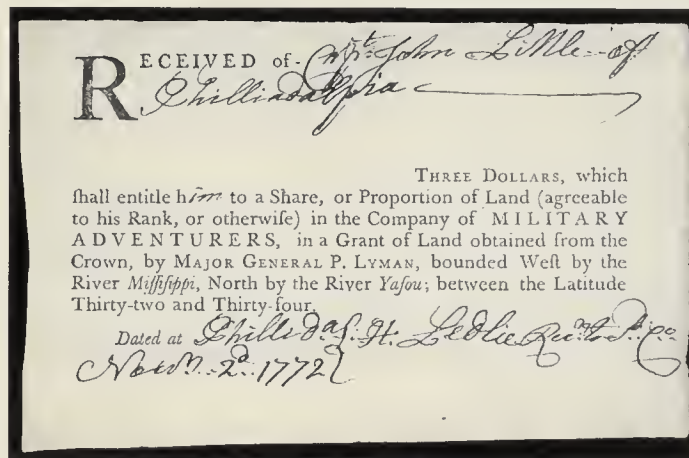 RECEIVED of Capt. John Little of
Philliadalpia
THREE DOLLARS, which
ſhall entitle him to a Share, or Proportion of Land (agreeable
to his Rank, or otherwiſe) in the Company of MILITARY
ADVENTURERS, in a Grant of Land obtained from the
Crown, by MAJOR GENERAL P. LYMAN, bounded Weſt by the
River Miſſiſippi, North by the River Yaſou; between the Latitude
Thirty-two and Thirty-four.
Dated at Phillidal. H. Ledlie
Novm. 2d. 1772